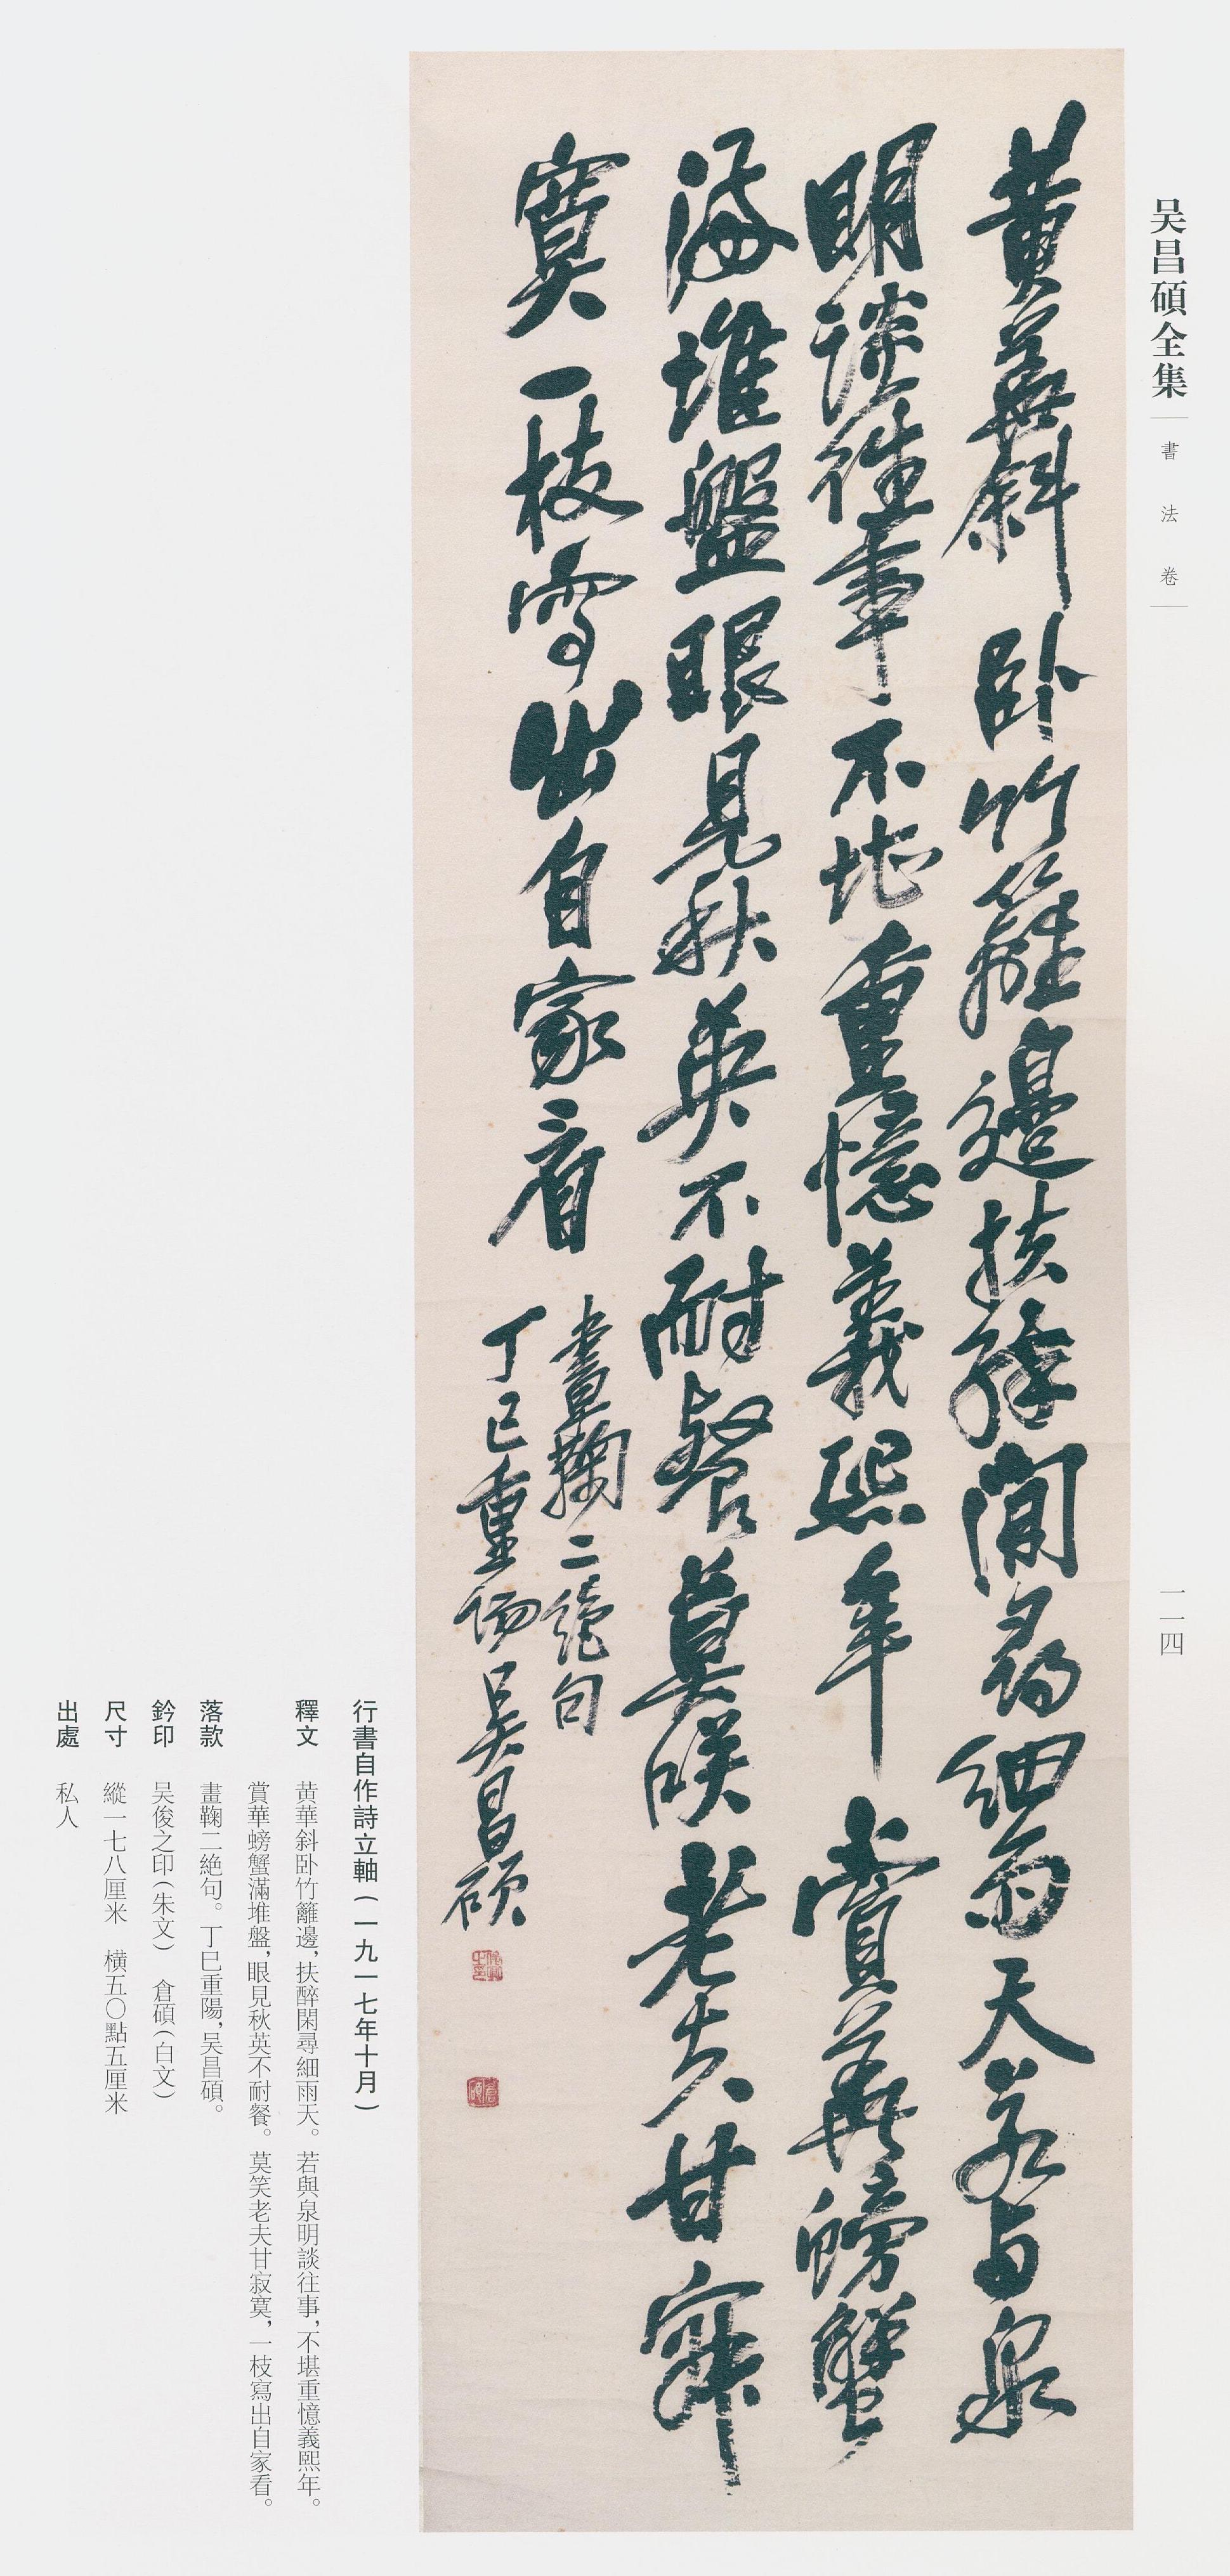 吴昌碩全集
書法卷
一一四
黄華斜卧竹籬邊扶醉閑尋細雨天若与泉
明談往事不堪重憶義熙年賞華螃蟹
滿堆盤眼見秋英不耐餐莫咲老夫甘寂
寞一枝寫出自家看
畫鞠二絶句
丁巳重陽吴昌碩
行書自作詩立軸(一九一七年十月)
釋文 黄華斜卧竹籬邊,扶醉閑尋細雨天。若與泉明談往事,不堪重憶義熙年。
賞華螃蟹滿堆盤,眼見秋英不耐餐。莫笑老夫甘寂寞,一枝寫出自家看。
落款 畫鞠二絶句。丁巳重陽,吴昌碩。
鈐印 吴俊之印(朱文) 倉碩(白文)
尺寸 縱一七八厘米 横五〇點五厘米
出處 私人